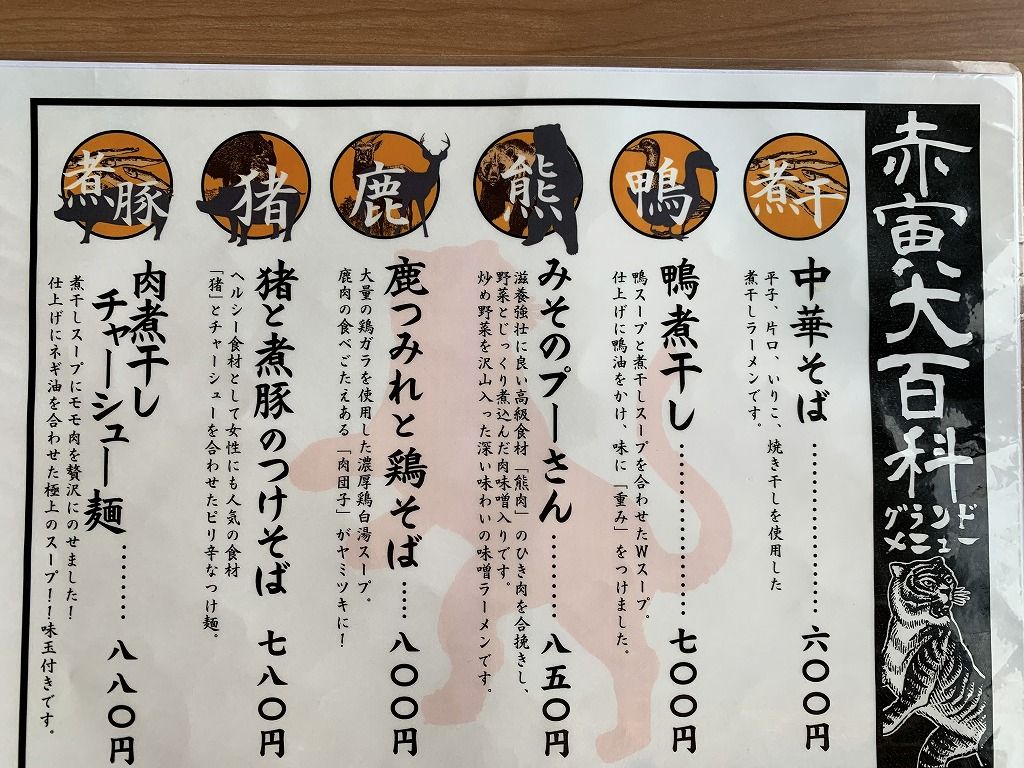 赤寅大百科
グランド
メニュー
煮干
中華そば ………… 六〇〇円
平子、片口、いりこ、焼き干しを使用した
煮干しラーメンです。
鴨
鴨煮干し ………… 七〇〇円
鴨スープと煮干しスープを合わせたWスープ。
仕上げに鴨油をかけ、味に「重み」をつけました。
熊
みそのプーさん ……… 八五〇円
滋養強壮に良い高級食材「熊肉」のひき肉を合挽きし、
野菜とじっくり煮込んだ肉味噌入りです。
炒め野菜を沢山入った深い味わいの味噌ラーメンです。
鹿
鹿つみれと鶏そば …… 八〇〇円
大量の鶏ガラを使用した濃厚鶏白湯スープ。
鹿肉の食べごたえある「肉団子」がヤミツキに!
猪
猪と煮豚のつけそば 七八〇円
ヘルシー食材として女性にも人気の食材
「猪」とチャーシューを合わせたピリ辛なつけ麺。
煮豚
肉煮干し
チャーシュー麺 ……… 八八〇円
煮干しスープにモモ肉を贅沢にのせました!
仕上げにネギ油を合わせた極上のスープ!!味玉付きです。